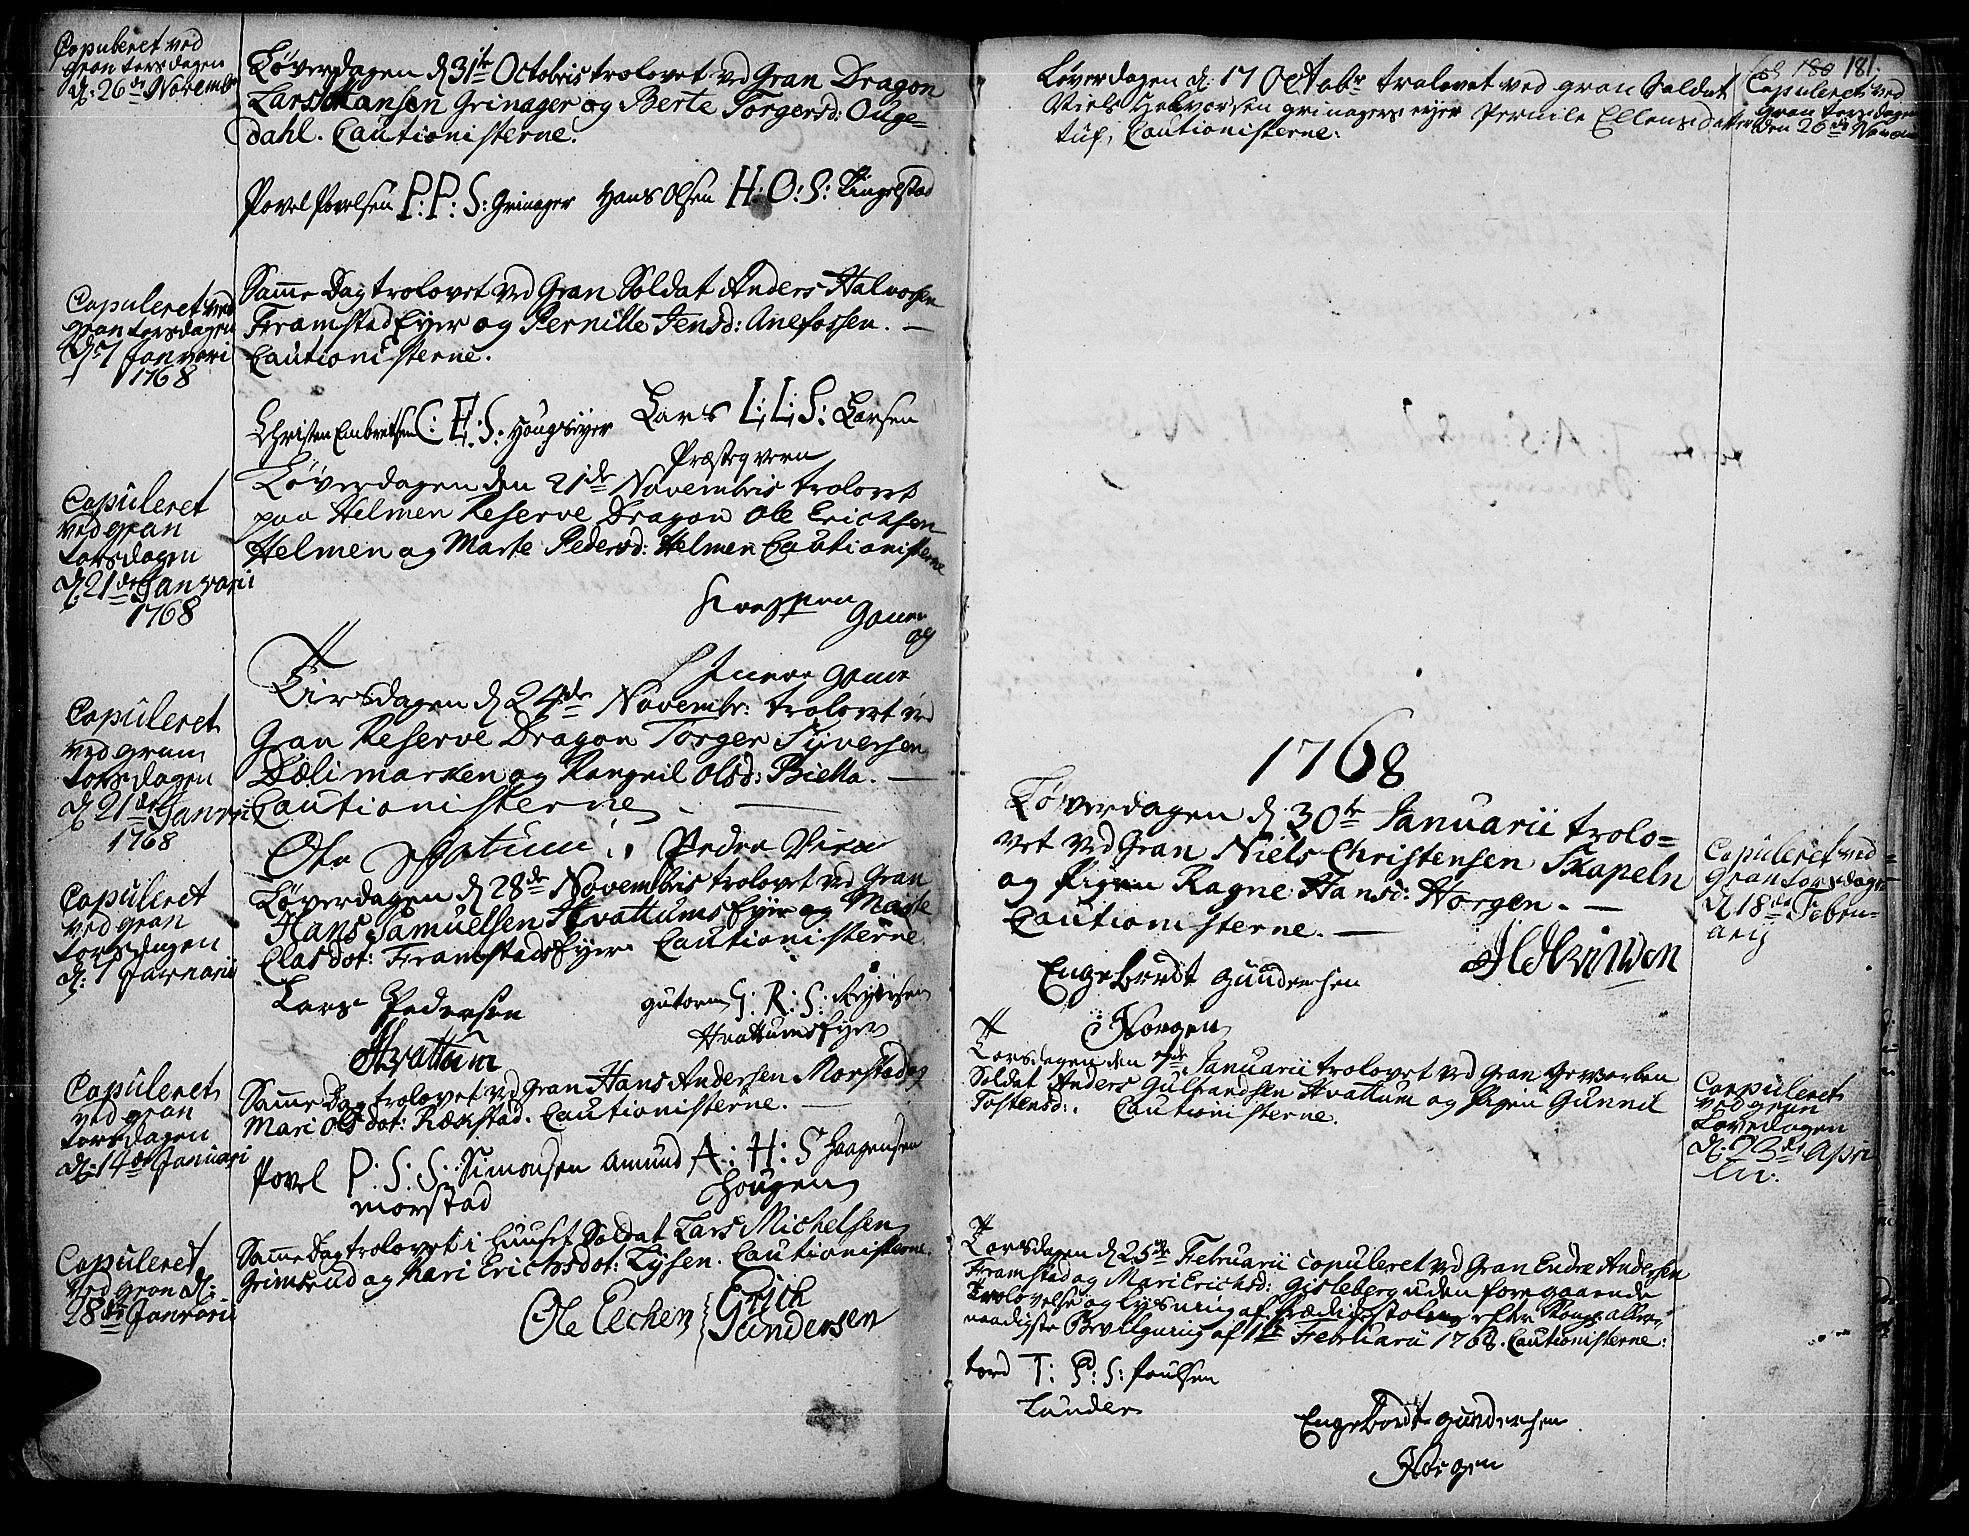 Copuleret ved
Gran torsdagen
d. 26de Novembr
Løverdagen d 31te Octobris trolovet ved Gran Dragon
Lars Hansen Grinager og Berte Torgersd: Onge=
dahl. Cautionisterne.
Povel Povelsen P: P: S: Grinager Hans Olsen H: O: S: Tingelstad
Copuleret ved
Gran torsdagen
d. 7 Janvari
1768
Samme Dag trolovet ved Gran Soldat Anders Halvorsen
Framstad Eyer og Pernille Jensd: Anefossen. —
Cautionisterne.
Christen Embretsen C: E: S: Hougseyer Lars L: L: S: Larsen
Præstqvern
Copuleret
ved Gran
torsdagen
d. 21de Janvarii
1768
Løverdagen den 21de Novembris trolovet
paa Helmen Reserve Dragon Ole Erichsen
Helmen og Marte Pedersd: Helmen Cautionisterne
og
Copuleret
ved Gran
torsdagen
d. 21de Janvri
1768
Tirsdagen d 24de Novembr: trolovet ved
Gran Reserve Dragon Torger Syversen
Dælimarken og Rangnil Olsd: Biella. —
Cautionisterne
Copuleret
ved Gran
torsdagen
d. 7 Januarii
Løverdagen d 28de Novembris trolovet ved Gran
Hans Samuelsen Hvattums Eyer og Marte
Elasdot: Framstads Eyer Cautionisterne.
Lars Pedersen
Hvattum
Gutorm G: R: S:
Hvattums Eyer
Copuleret
ved Gran
torsdagen
d. 14de Januari
Samme Dag trolovet ved Gran Hans Andersen Morstad og
Mari Olsdot: Rækstad. Cautionisterne. —
Povel P: S: S: Simonsen Amund A: H: S Haagensen
Morstad Hougen
Copuleret
ved Gran d.
28de Janvarii
Samme Dag trolovet i Huuset Soldat Lars Michelsen
Grimsrud og Kari Erichsdot: Lysen. Cautionisterne.
Ole Eichen Erich
Gundersen
fol 180 181.
Løverdagen d. 17 Octobr trolovet ved Gran Soldat
Niels Halvorsen Grinagers eyer Pernile Ellensdatter
Cautionisterne:
Copuleret ved
Gran torsdagen
den 26de Novem
1768
Løverdagen d 30te Januarii trolo=
vet ved Gran Niels Christensen Skapeln
og Pigen Ragne Hansd: Horgen. —
Cautionisterne. —
Engebredt Gundersen
Horgen
Copuleret ved
Gran torsdagen
d 18de Febru=
arij
Torsdagen den 7de Januarii trolovet ved Gran Gevorben
Soldat Anders Gulbrandsen Hvattum og Pigen Gunnil
Tostensd: Cautionisterne.
Copuleret
ved Gran
Løverdagen
d. 23de Apri
lii.
Torsdagen d 25de Februarii copuleret ved Gran Endre Andersen
Framstad og Mari Erichsd: Gisleberg uden foregaaende
Trolovelse og Lysning af Prædikestolen efter Kongs aller=
naadigste Bevilgning af 1te Februarii 1768. Cautionisterne:
Tord T: P: S: Poulsen
Lunder
Engebredt Gundersen
Horgen